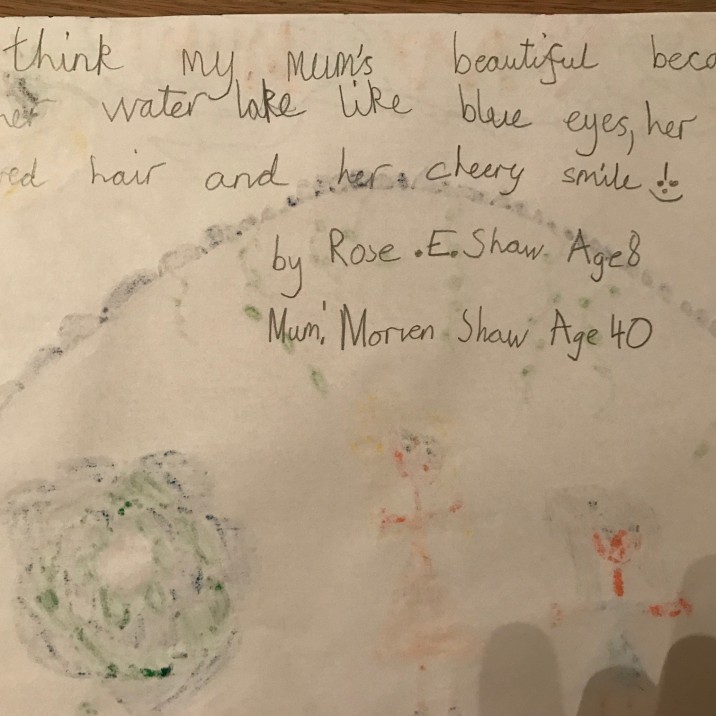 think my mum's beautiful beca
her water lake like blue eyes, her
red hair and her cheery smile
by Rose .E. Shaw. Age 8
Mum: Morven Shaw Age 40